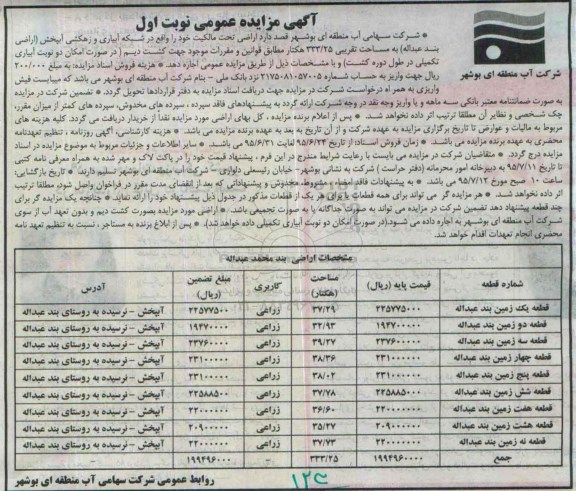 آگهی مزایده عمومی نوبت اول
شرکت آب منطقه ای بوشهر
* شرکت سهامی آب منطقه ای بوشهر قصد دارد اراضی تحت مالکیت خود را واقع در شبکه آبیاری و زهکشی آبپخش (اراضی
بند عبداله) به مساحت تقریبی ۳۳۳/۲۵ هکتار مطابق قوانین و مقررات موجود جهت کشت دیم ( در صورت امکان دو نوبت آبیاری
تکمیلی در طول دوره کشت) و با مشخصات ذیل از طریق مزایده عمومی اجاره دهد. * هزینه فروش اسناد مزایده: به مبلغ ۲۰۰/۰۰۰
ریال جهت واریز به حساب شماره ۲۱۷۵۰۸۱۰۵۷۰۰۵ نزد بانک ملی – بنام شرکت آب منطقه ای بوشهر می باشد که میبایست فیش
واریزی به همراه درخواست شرکت در مزایده جهت دریافت اسناد مزایده به دفتر قراردادها تحویل گردد. * تضمین شرکت در مزایده
به صورت ضمانتنامه معتبر بانکی سه ماهه و یا واریز وجه نقد در وجه شرکت ارائه گردد به پیشنهادهای فاقد سپرده ، سپرده های مخدوش، سپرده های کمتر از میزان مقرر،
چک شخصی و نظایر آن مطلقا ترتیب اثر داده نخواهد شد. * پس از اعلام برنده مزایده ، کل بهای اراضی مورد مزایده نقدا از خریدار دریافت می گردد. کلیه هزینه های
مربوط به مالیات و عوارض تا تاریخ برگزاری مزایده به عهده شرکت و از آن تاریخ به بعد به عهده برنده مزایده می باشد. * هزینه کارشناسی، آگهی روزنامه ، تنظیم تعهدنامه
محضری به عهده برنده مزایده می باشد. * زمان فروش اسناد: از تاریخ ۹۵/۶/۲۳ لغایت ۹۵/۶/۳۱ می باشد. * سایر اطلاعات و جزئیات مربوط به موضوع مزایده در اسناد
مزایده درج گردد. * متقاضیان شرکت در مزایده می بایست با رعایت شرایط مندرج در این فرم ، پیشنهاد قیمت خود را در پاکت لاک و مهر شده به همراه معرفی نامه کتبی
تا تاریخ ۹۵/۷/۱۱ به دبیرخانه امور محرمانه (دفتر حراست ) شرکت به نشانی بوشهر- خیابان رئیسعلی دلواری – شرکت آب منطقه ای بوشهر تسلیم دارند. * تاریخ بازگشایی:
ساعت ۱۰ صبح مورخ ۹۵/۷/۱۲ می باشد. * به پیشنهادات فاقد امضاء، مشروط، مخدوش و پیشنهاداتی که بعد از انقضای مدت مقرر در فراخوان واصل شود، مطلقا ترتیب
اثر داده نخواهد شد. * هر مزایده گر می تواند برای همه قطعات یا برای هر یک از قطعات مذکور در جدول ذیل پیشنهاد خود را ارائه نماید. * چنانچه یک مزایده گر برای
چند قطعه پیشنهاد دهد تضمین شرکت در مزایده می تواند به صورت جداگانه یا به صورت تجمیعی باشد. * اراضی مورد مزایده بصورت کشت دیم و بدون تعهد آب از سوی
شرکت آب منطقه ای بوشهر به اجاره داده می شود.(در صورت امکان دو نوبت آبیاری تکمیلی داده خواهد شد). * پس از ابلاغ برنده به مستاجر ، نسبت به تنظیم تعهد نامه
محضری انجام تعهدات اقدام خواهد شد.
مشخصات اراضی بند محمد عبداله
شماره قطعه | قیمت پایه (ریال) | مساحت (هکتار) | کاربری | مبلغ تضمین (ریال) | آدرس
قطعه یک زمین بند عبداله | ۲۲۵۷۷۵۰۰۰ | ۳۷/۲۹ | زراعی | ۲۲۵۷۷۵۰۰ | آبپخش – نرسیده به روستای بند عبداله
قطعه دو زمین بند عبداله | ۱۹۴۷۰۰۰۰۰ | ۳۲/۹۳ | زراعی | ۱۹۴۷۰۰۰۰ | آبپخش – نرسیده به روستای بند عبداله
قطعه سه زمین بند عبداله | ۲۳۷۶۰۰۰۰۰ | ۳۹/۲۷ | زراعی | ۲۳۷۶۰۰۰۰ | آبپخش – نرسیده به روستای بند عبداله
قطعه چهار زمین بند عبداله | ۲۳۱۰۰۰۰۰۰ | ۳۸/۳۶ | زراعی | ۲۳۱۰۰۰۰۰ | آبپخش – نرسیده به روستای بند عبداله
قطعه پنج زمین بند عبداله | ۲۳۱۰۰۰۰۰۰ | ۳۸/۰۲ | زراعی | ۲۳۱۰۰۰۰۰ | آبپخش – نرسیده به روستای بند عبداله
قطعه شش زمین بند عبداله | ۲۲۵۸۸۵۰۰۰ | ۳۷/۷۸ | زراعی | ۲۲۵۸۸۵۰۰ | آبپخش – نرسیده به روستای بند عبداله
قطعه هفت زمین بند عبداله | ۲۲۰۰۰۰۰۰۰ | ۳۶/۶۰ | زراعی | ۲۲۰۰۰۰۰۰ | آبپخش – نرسیده به روستای بند عبداله
قطعه هشت زمین بند عبداله | ۲۰۹۰۰۰۰۰۰ | ۳۵/۲۷ | زراعی | ۲۰۹۰۰۰۰۰ | آبپخش – نرسیده به روستای بند عبداله
قطعه نه زمین بند عبداله | ۲۲۰۰۰۰۰۰۰ | ۳۷/۷۳ | زراعی | ۲۲۰۰۰۰۰۰ | آبپخش – نرسیده به روستای بند عبداله
جمع | ۱۹۹۴۹۶۰۰۰۰ | ۳۳۳/۲۵ | – | ۱۹۹۴۹۶۰۰۰ | –
روابط عمومی شرکت سهامی آب منطقه ای بوشهر